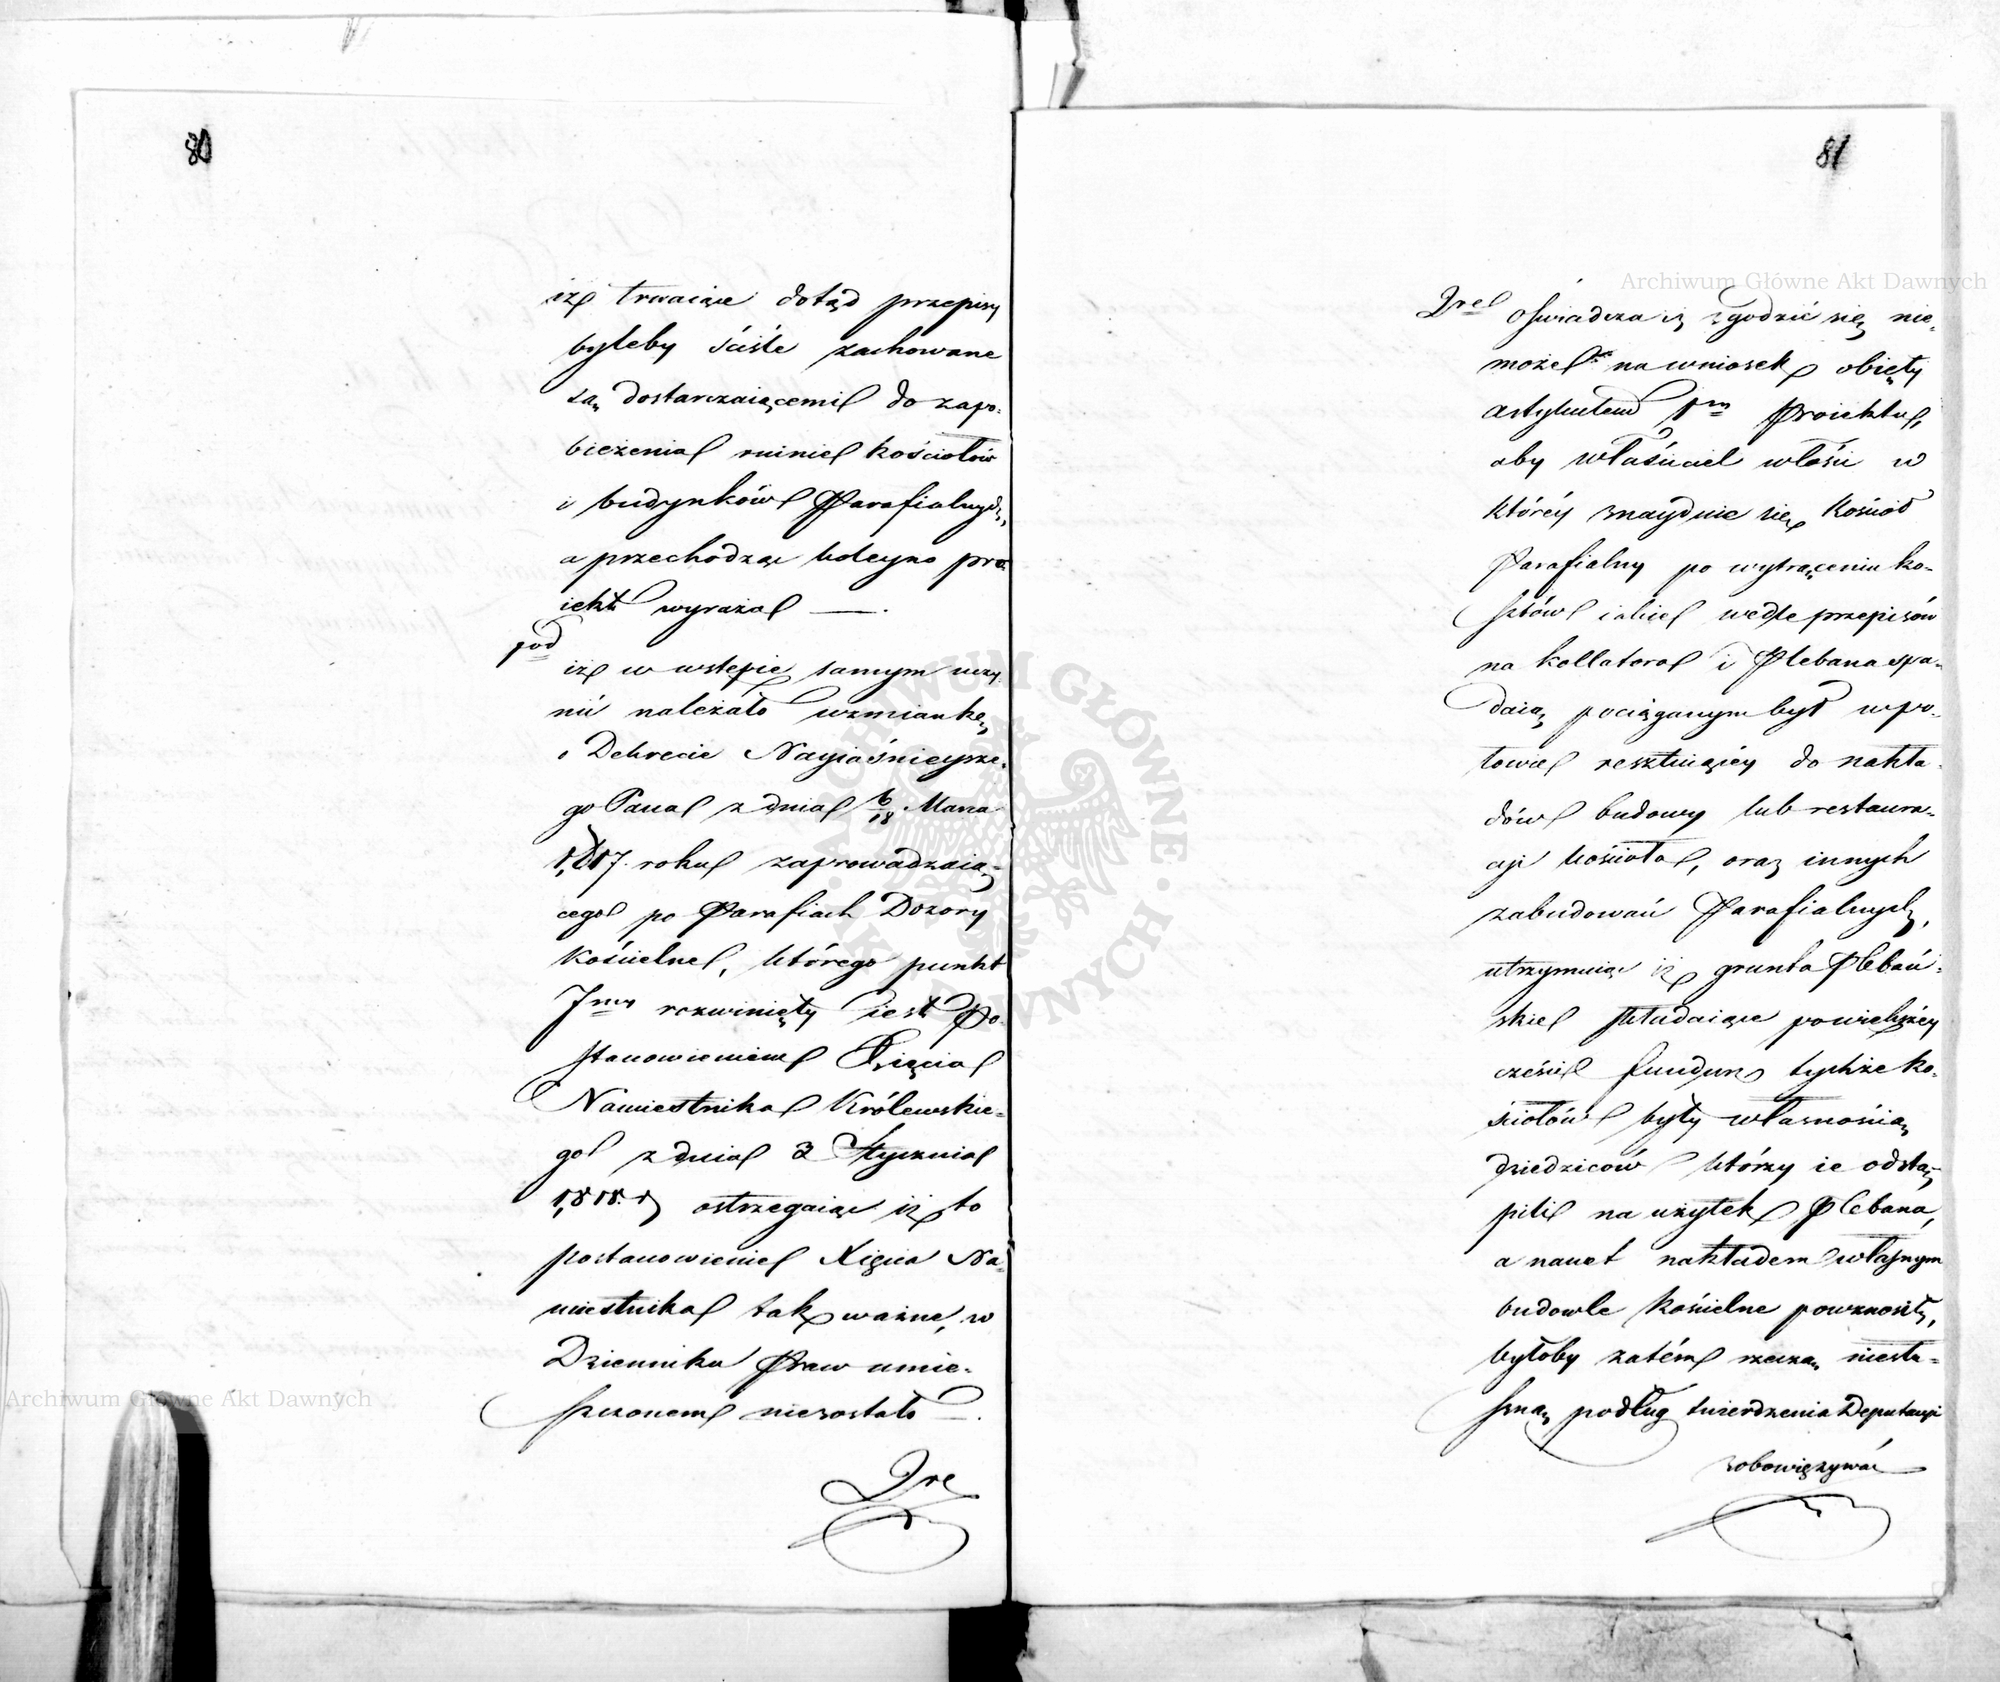 80
iż trwaiące dotąd przepisy
byleby ściśle zachowane
są dostarczaiącemi do zapo-
bieżenia ruinie kościołów
i budynków Parafialnych,
a przechodząc koleyno pro-
iekt wyraża —.
1od
iż w wstępie samym uczy-
nić należało wzmiankę
o Dekrecie Nayiaśnieysze-
go Pana z dnia 6/18 Marca
1,817. roku zaprowadzaią-
cego po Parafiach Dozory
kościelne, którego punkt
7my rozwinięty iest Po-
stanowieniem Xięcia
Namiestnika Królewskie-
go z dnia 3 Stycznia
1,818. r ostrzegaiąc iż to
postanowienie Xięcia Na-
miestnika tak ważne, w
Dzienniku Praw umie-
szczonem niezostało —.
2re
81
2re oświadcza iż zgodzić się nie-
może na wniosek obięty
artykułem 1m Proiektu,
aby właściciel włości w
którey znayduie się Kościół
Parafialny po wytrąceniu ko-
sztów iakie wedle przepisów
na kollatora i Plebana spa-
daią pociąganym był w po-
łowie resztuiącey do nakła-
dów budowy lub restaura-
cyi kościoła, oraz innych
zabudowań Parafialnych,
utrzymuiąc iż grunta Plebań-
skie składaiące powiększey
części fundusz tychże ko-
ściołów były własnością
dziedziców którzy ie odstą-
pili na użytek Plebana,
a nawet nakładem własnym
budowle kościelne powznosili,
byłoby zatém rzeczą niesłu-
szną podług twierdzenia Deputacyi
zobowięzywać
Archiwum Główne Akt Dawnych
Archiwum Główne Akt Dawnych
ARCHIWUM GŁÓWNE AKT DAWNYCH